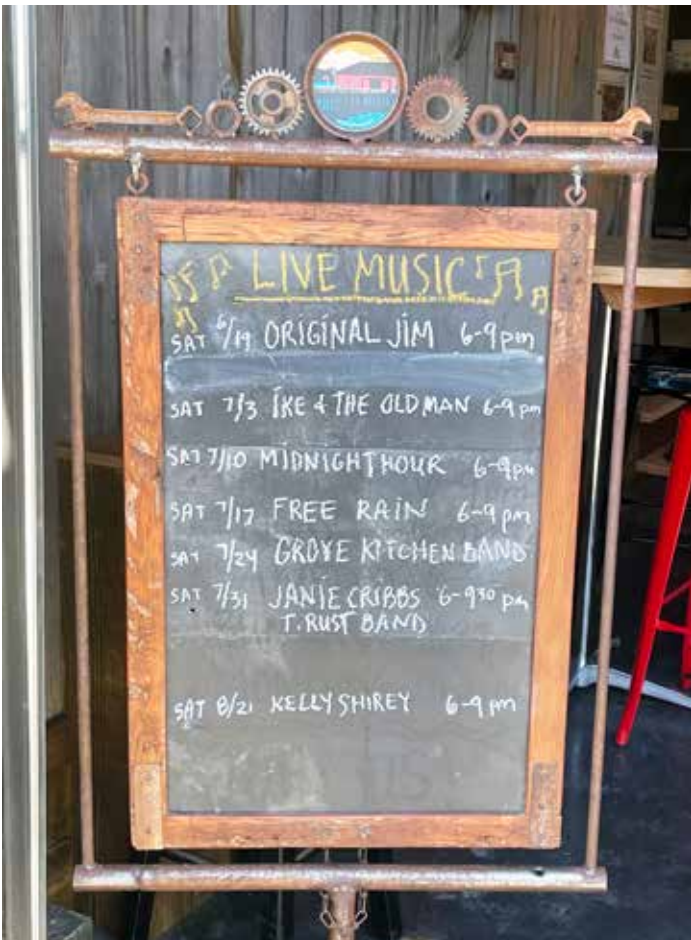 LIVE MUSIC
SAT 6/19 ORIGINAL JIM 6-9pm
SAT 7/3 IKE & THE OLD MAN 6-9pm
SAT 7/10 MIDNIGHT HOUR 6-9pm
SAT 7/17 FREE RAIN 6-9pm
SAT 7/24 GROVE KITCHEN BAND
SAT 7/31 JANIE CRIBBS 6-930 pm
T.RUST BAND
SAT 8/21 KELLY SHIREY 6-9pm